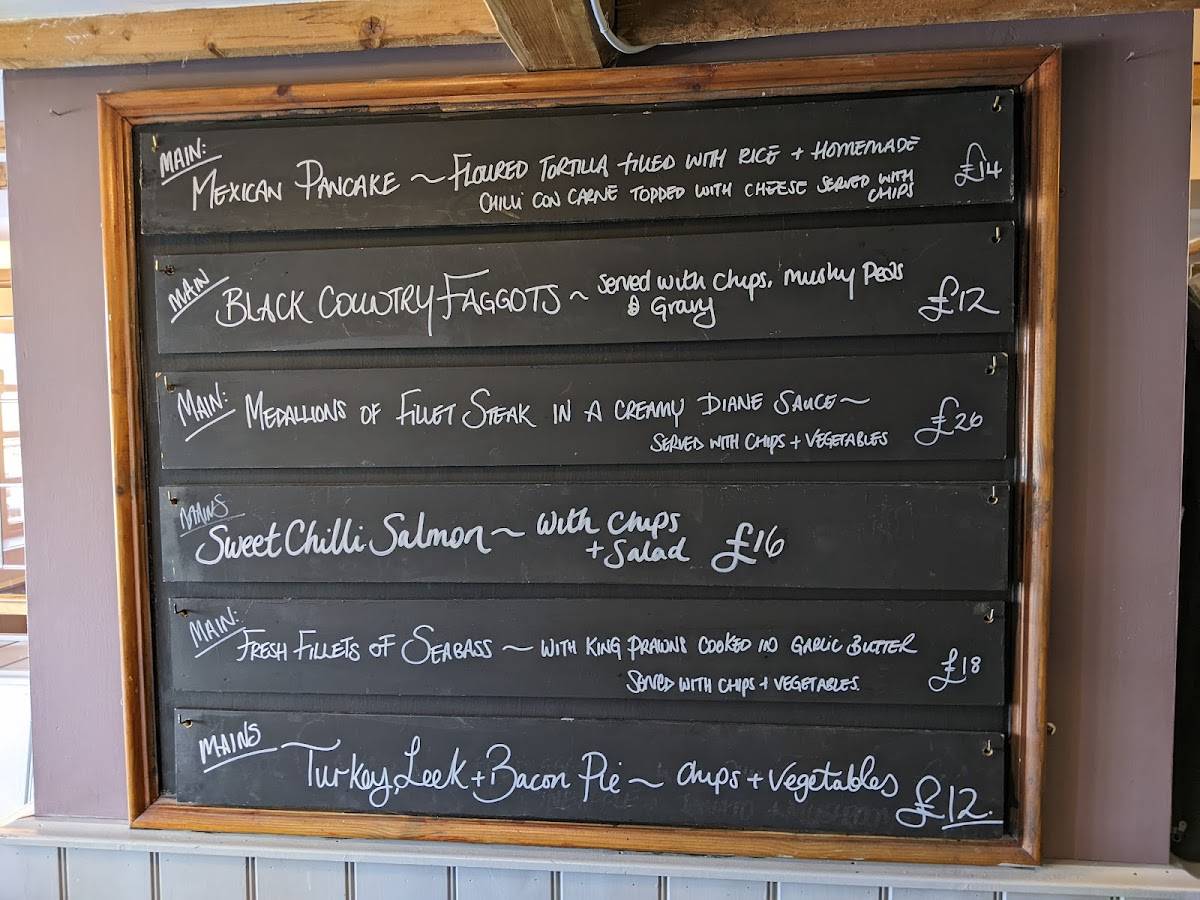 MAIN:
MEXICAN PANCAKE ~ FLOURED TORTILLA FILLED WITH RICE + HOMEMADE
CHILLI CON CARNE TOPPED WITH CHEESE SERVED WITH
CHIPS
£14
MAIN
BLACK COUNTRY FAGGOTS ~ served with chips, mushy Peas
& Gravy
£12
MAIN:
MEDALLIONS OF FILLET STEAK IN A CREAMY DIANE SAUCE ~
SERVED WITH CHIPS + VEGETABLES
£26
MAINS
Sweet Chilli Salmon ~ with chips
+ Salad
£16
MAIN:
FRESH FILLETS OF SEABASS ~ WITH KING PRAWNS COOKED IN GARLIC BUTTER
SERVED WITH CHIPS + VEGETABLES.
£18
MAINS
Turkey, Leek + Bacon Pie ~ chips + vegetables
£12.